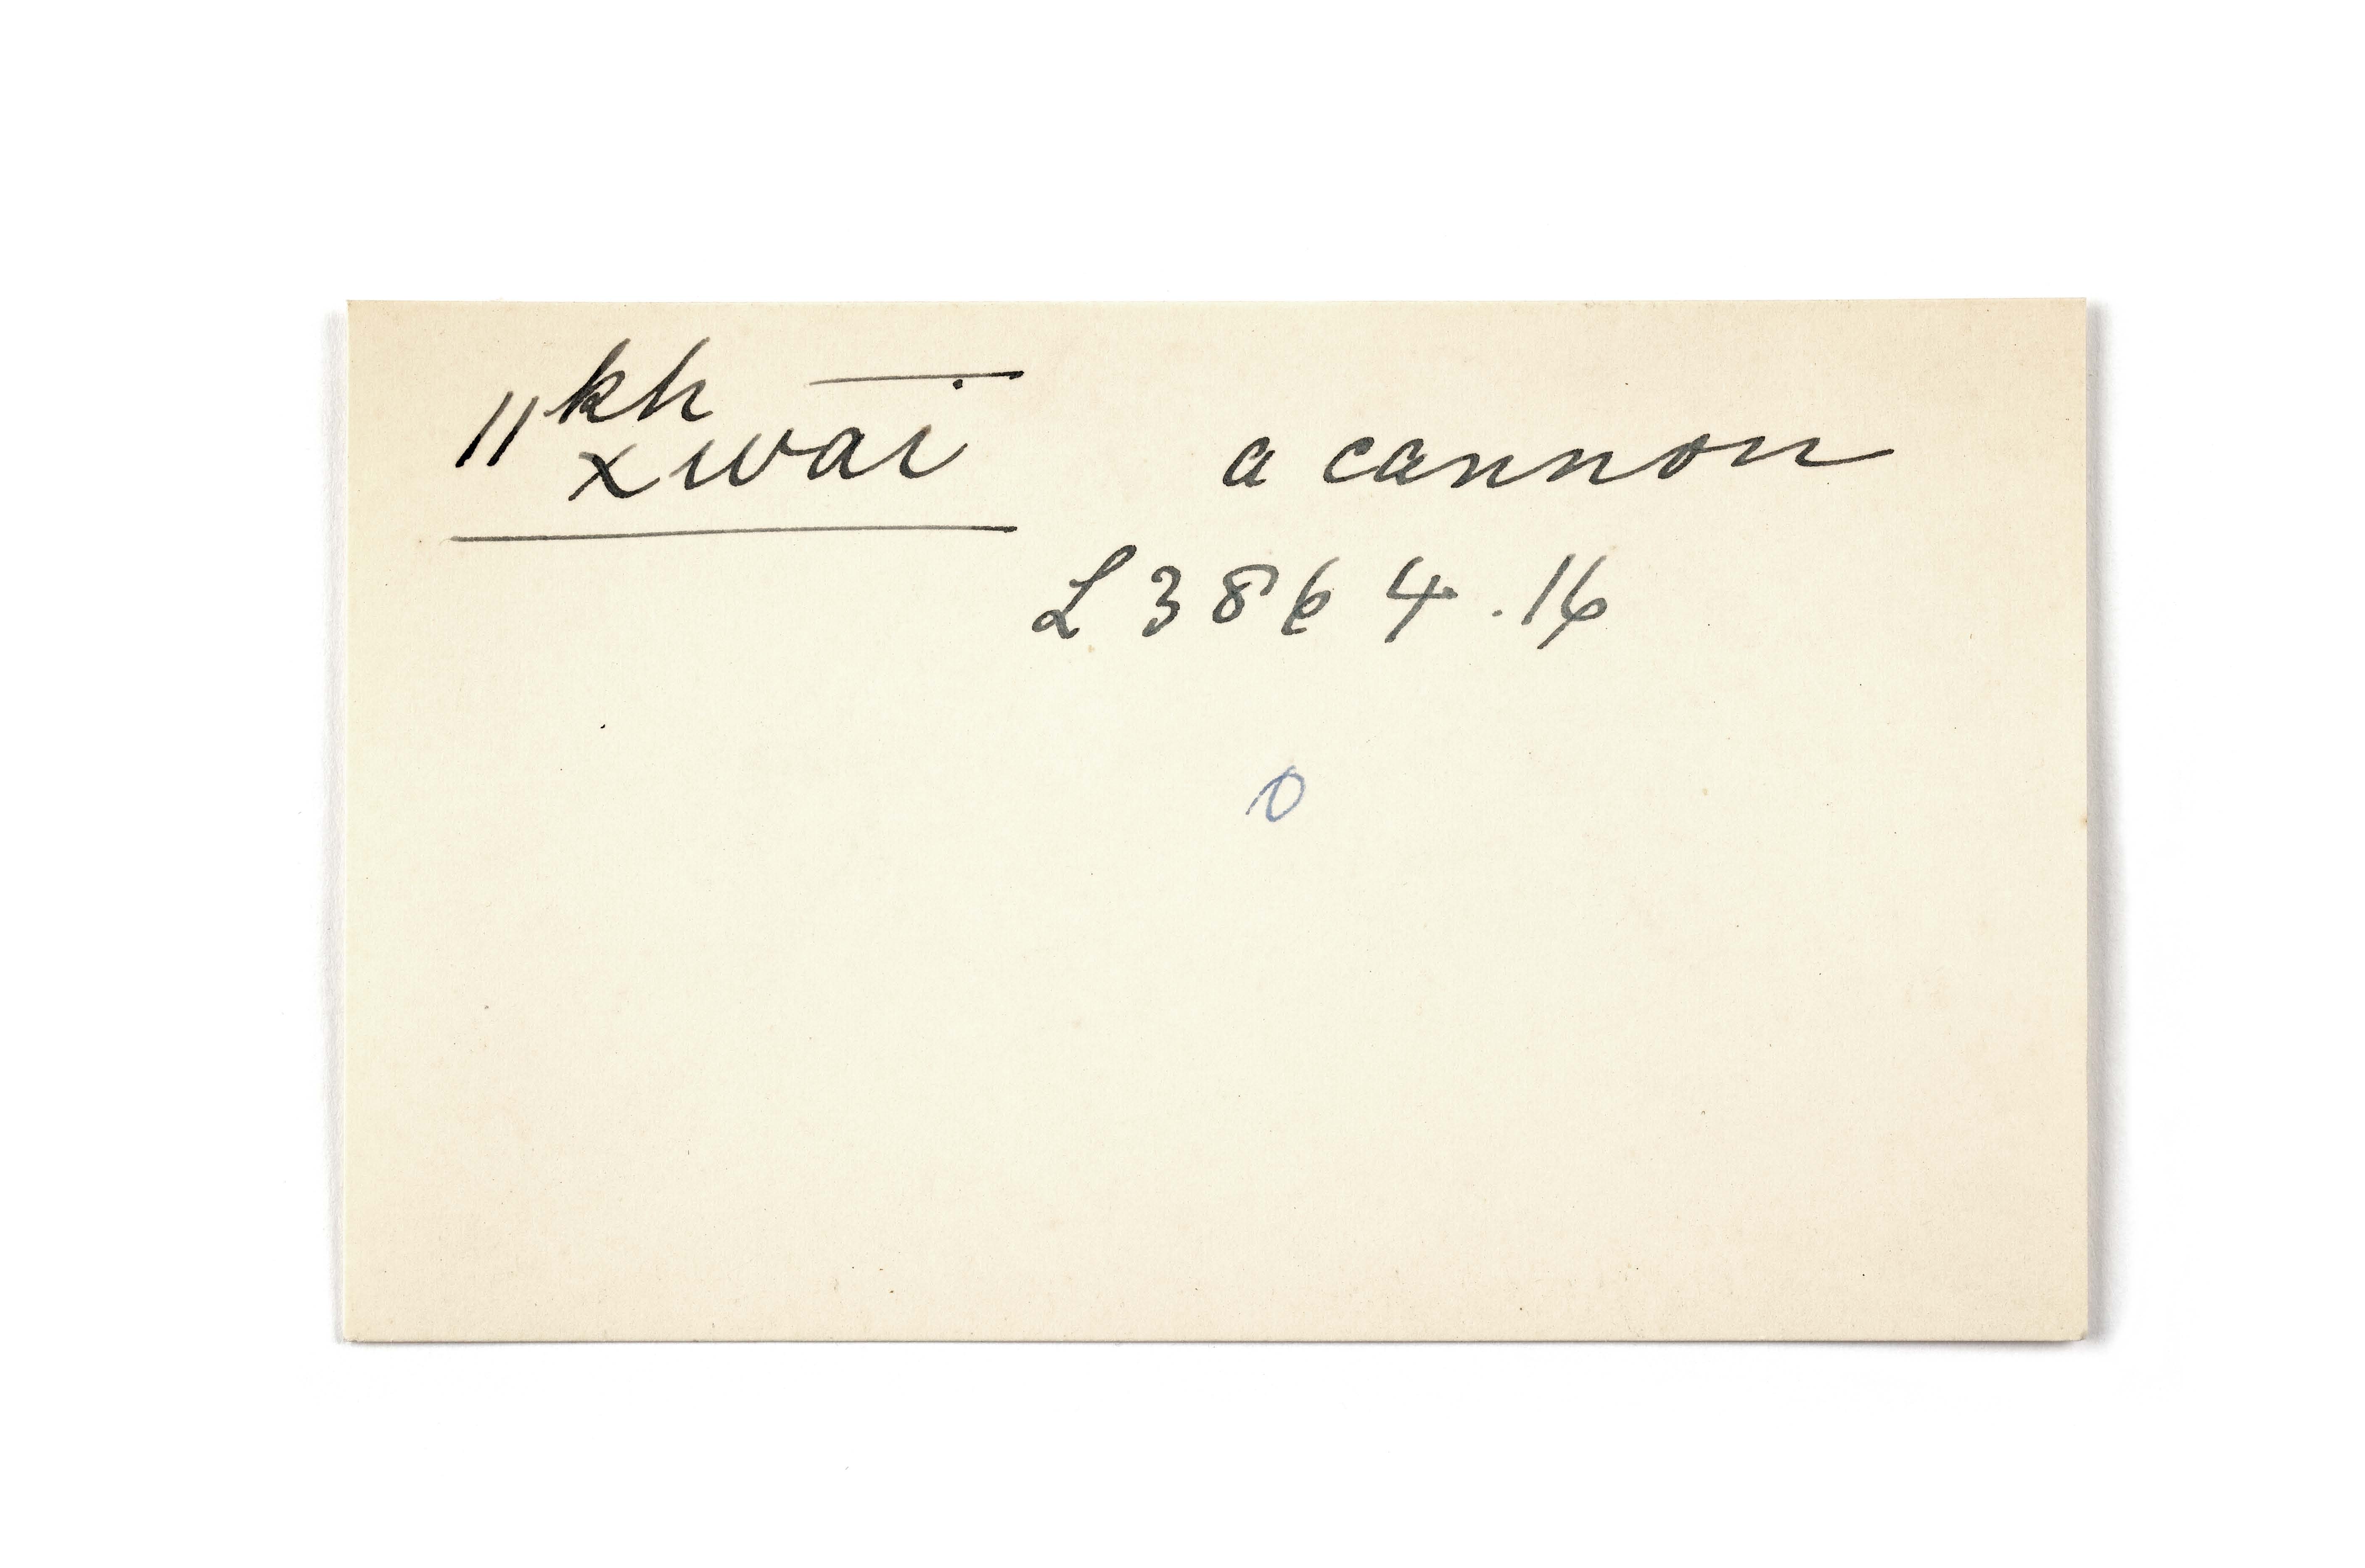 ‖kh
xwai a cannon
L 3864.16
0